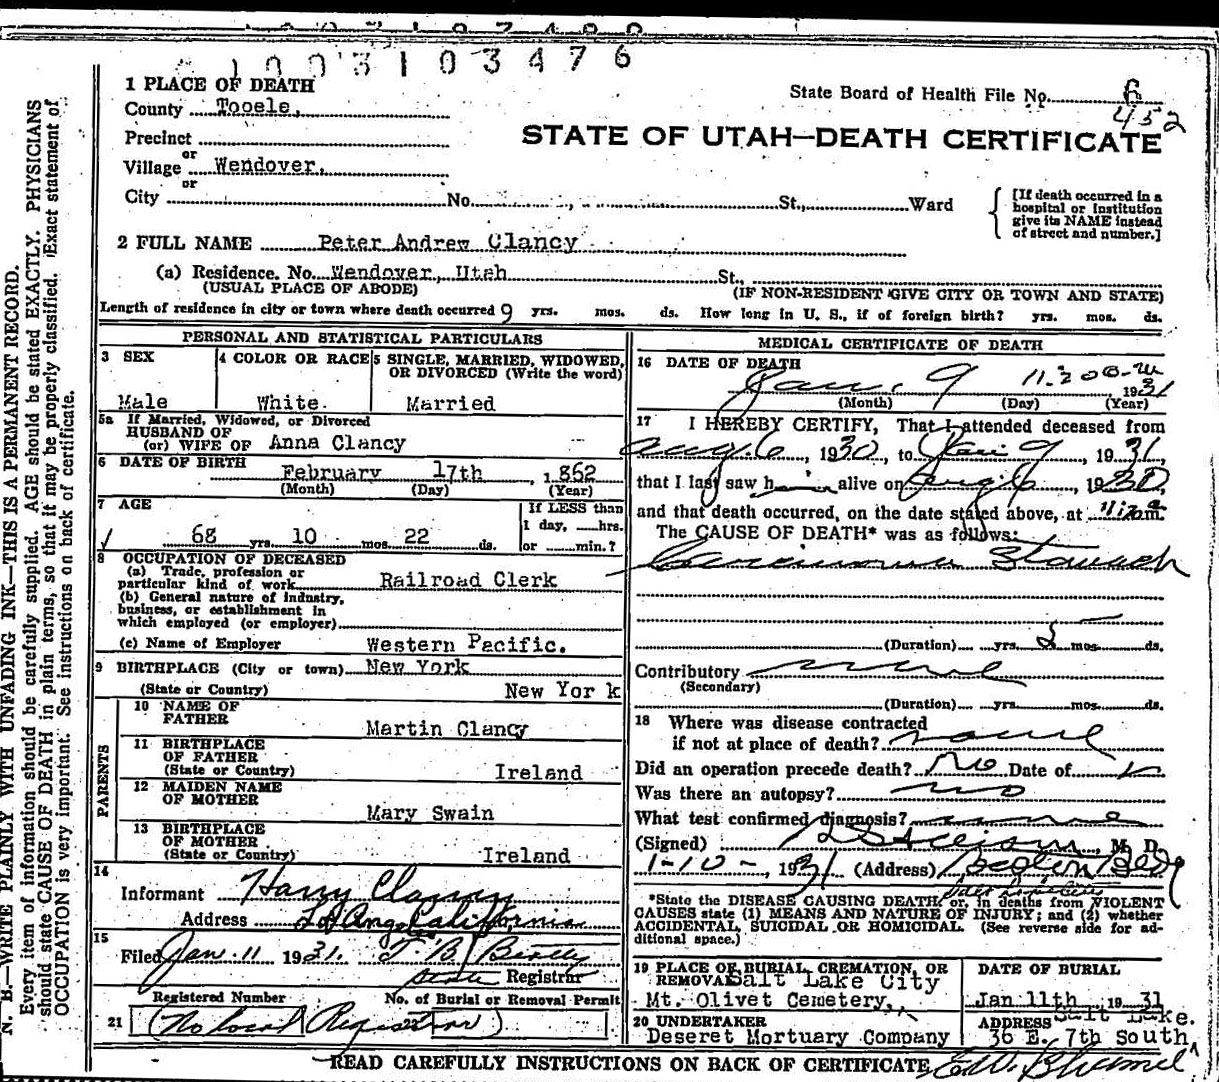 1003103476
1 PLACE OF DEATH
State Board of Health File No. 6
452
County Tooele,
STATE OF UTAH—DEATH CERTIFICATE
Precinct
or
Village Wendover,
or
City No. St., Ward
[If death occurred in a
hospital or institution
give its NAME instead
of street and number.]
2 FULL NAME Peter Andrew Clancy
(a) Residence. No. Wendover, Utah St.,
(USUAL PLACE OF ABODE) (IF NON-RESIDENT GIVE CITY OR TOWN AND STATE)
Length of residence in city or town where death occurred 9 yrs. mos. ds. How long in U. S., if of foreign birth? yrs. mos. ds.
PERSONAL AND STATISTICAL PARTICULARS
3 SEX 4 COLOR OR RACE 5 SINGLE, MARRIED, WIDOWED,
OR DIVORCED (Write the word)
Male White. Married
5a If Married, Widowed, or Divorced
HUSBAND OF
(or) WIFE OF Anna Clancy
6 DATE OF BIRTH
February 17th, 1862
(Month) (Day) (Year)
7 AGE If LESS than
1 day, hrs.
68 yrs. 10 mos. 22 ds. or min.?
8 OCCUPATION OF DECEASED
(a) Trade, profession or
particular kind of work Railroad Clerk
(b) General nature of industry,
business, or establishment in
which employed (or employer)
(c) Name of Employer Western Pacific.
9 BIRTHPLACE (City or town) New York
(State or Country) New York
PARENTS
10 NAME OF
FATHER Martin Clancy
11 BIRTHPLACE
OF FATHER
(State or Country) Ireland
12 MAIDEN NAME
OF MOTHER Mary Swain
13 BIRTHPLACE
OF MOTHER
(State or Country) Ireland
14
Informant Harry Clancy
Address Los Angeles California
15
Filed Jan. 11 1931.
State Registrar
Registered Number No. of Burial or Removal Permit
21 (No local Registrar)
MEDICAL CERTIFICATE OF DEATH
16 DATE OF DEATH
Jan. 9 1931
(Month) (Day) (Year)
17 I HEREBY CERTIFY, That I attended deceased from
Aug. 6, 1930, to Jan 9, 1931,
that I last saw him alive on Aug 6, 1930,
and that death occurred, on the date stated above, at m.
The CAUSE OF DEATH* was as follows:
Carcinoma Stomach
(Duration) yrs. 5 mos. ds.
Contributory none
(Secondary)
(Duration) yrs. mos. ds.
18 Where was disease contracted
if not at place of death?
Did an operation precede death? No Date of
Was there an autopsy? no
What test confirmed diagnosis? none
(Signed) M. D.
1-10-, 1931 (Address)
*State the DISEASE CAUSING DEATH, or, in deaths from VIOLENT
CAUSES state (1) MEANS AND NATURE OF INJURY; and (2) whether
ACCIDENTAL, SUICIDAL OR HOMICIDAL. (See reverse side for ad-
ditional space.)
19 PLACE OF BURIAL, CREMATION, OR
REMOVAL Salt Lake City
Mt. Olivet Cemetery,
DATE OF BURIAL
Jan 11th 1931
20 UNDERTAKER
Deseret Mortuary Company
ADDRESS Salt Lake.
36 E. 7th South
READ CAREFULLY INSTRUCTIONS ON BACK OF CERTIFICATE
N. B.—WRITE PLAINLY WITH UNFADING INK—THIS IS A PERMANENT RECORD.
Every item of information should be carefully supplied. AGE should be stated EXACTLY. PHYSICIANS
should state CAUSE OF DEATH in plain terms, so that it may be properly classified. Exact statement of
OCCUPATION is very important. See instructions on back of certificate.